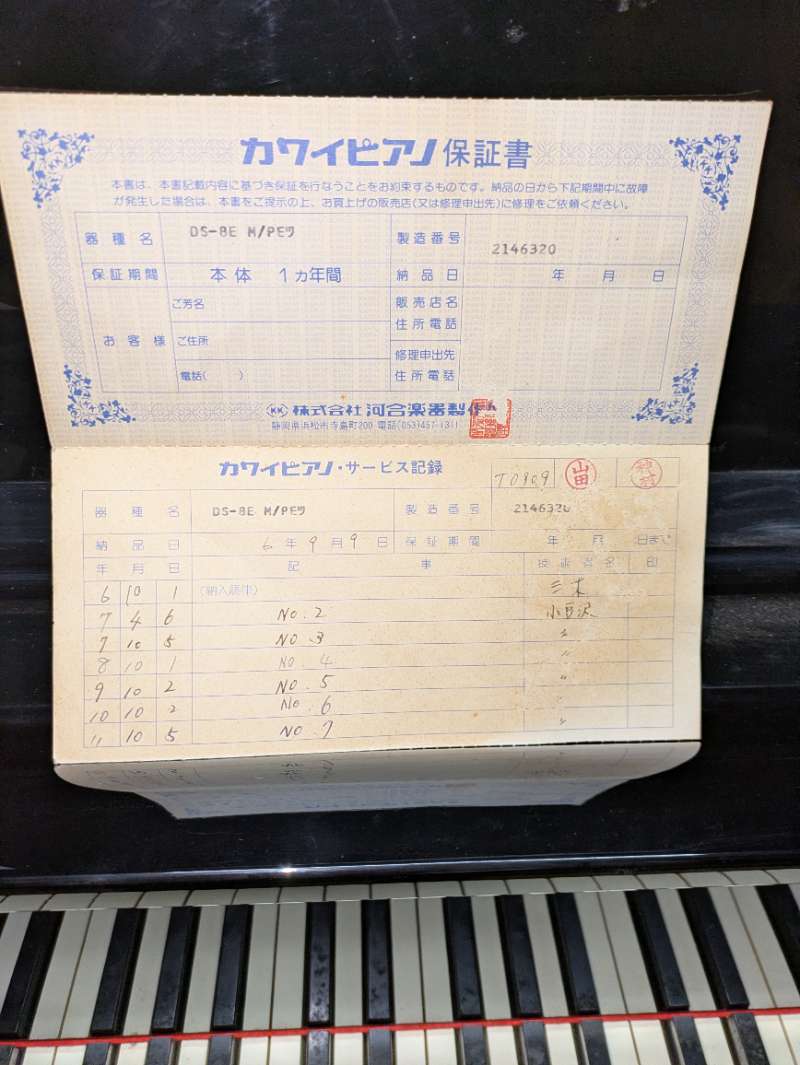 カワイピアノ 保証書
本書は、本書記載内容に基づき保証を行なうことをお約束するものです。納品の日から下記期間中に故障
が発生した場合は、本書をご提示の上、お買上げの販売店(又は修理申出先)に修理をご依頼ください。
器種名 DS-8E M/PEツ 製造番号 2146320
保証期間 本体 1ヵ年間 納品日 年 月 日
お客様 ご芳名 販売店名
ご住所 住所電話
修理申出先
電話( ) 住所電話
KK 株式会社 河合楽器製作
静岡県浜松市寺島町200 電話(053)457-1311
カワイピアノ・サービス記録 T0909 山田
器種名 DS-8E M/PEツ 製造番号 2146320
納品日 6年9月9日 保証期間 年 月 日まで
年 月 日 記 事 技術者名 印
6 10 1 (納入調律) 三木
7 4 6 No.2 小豆沢
7 10 5 No.3 〃
8 10 1 No 4 〃
9 10 2 No.5 〃
10 10 2 No.6 〃
11 10 5 No.7 〃